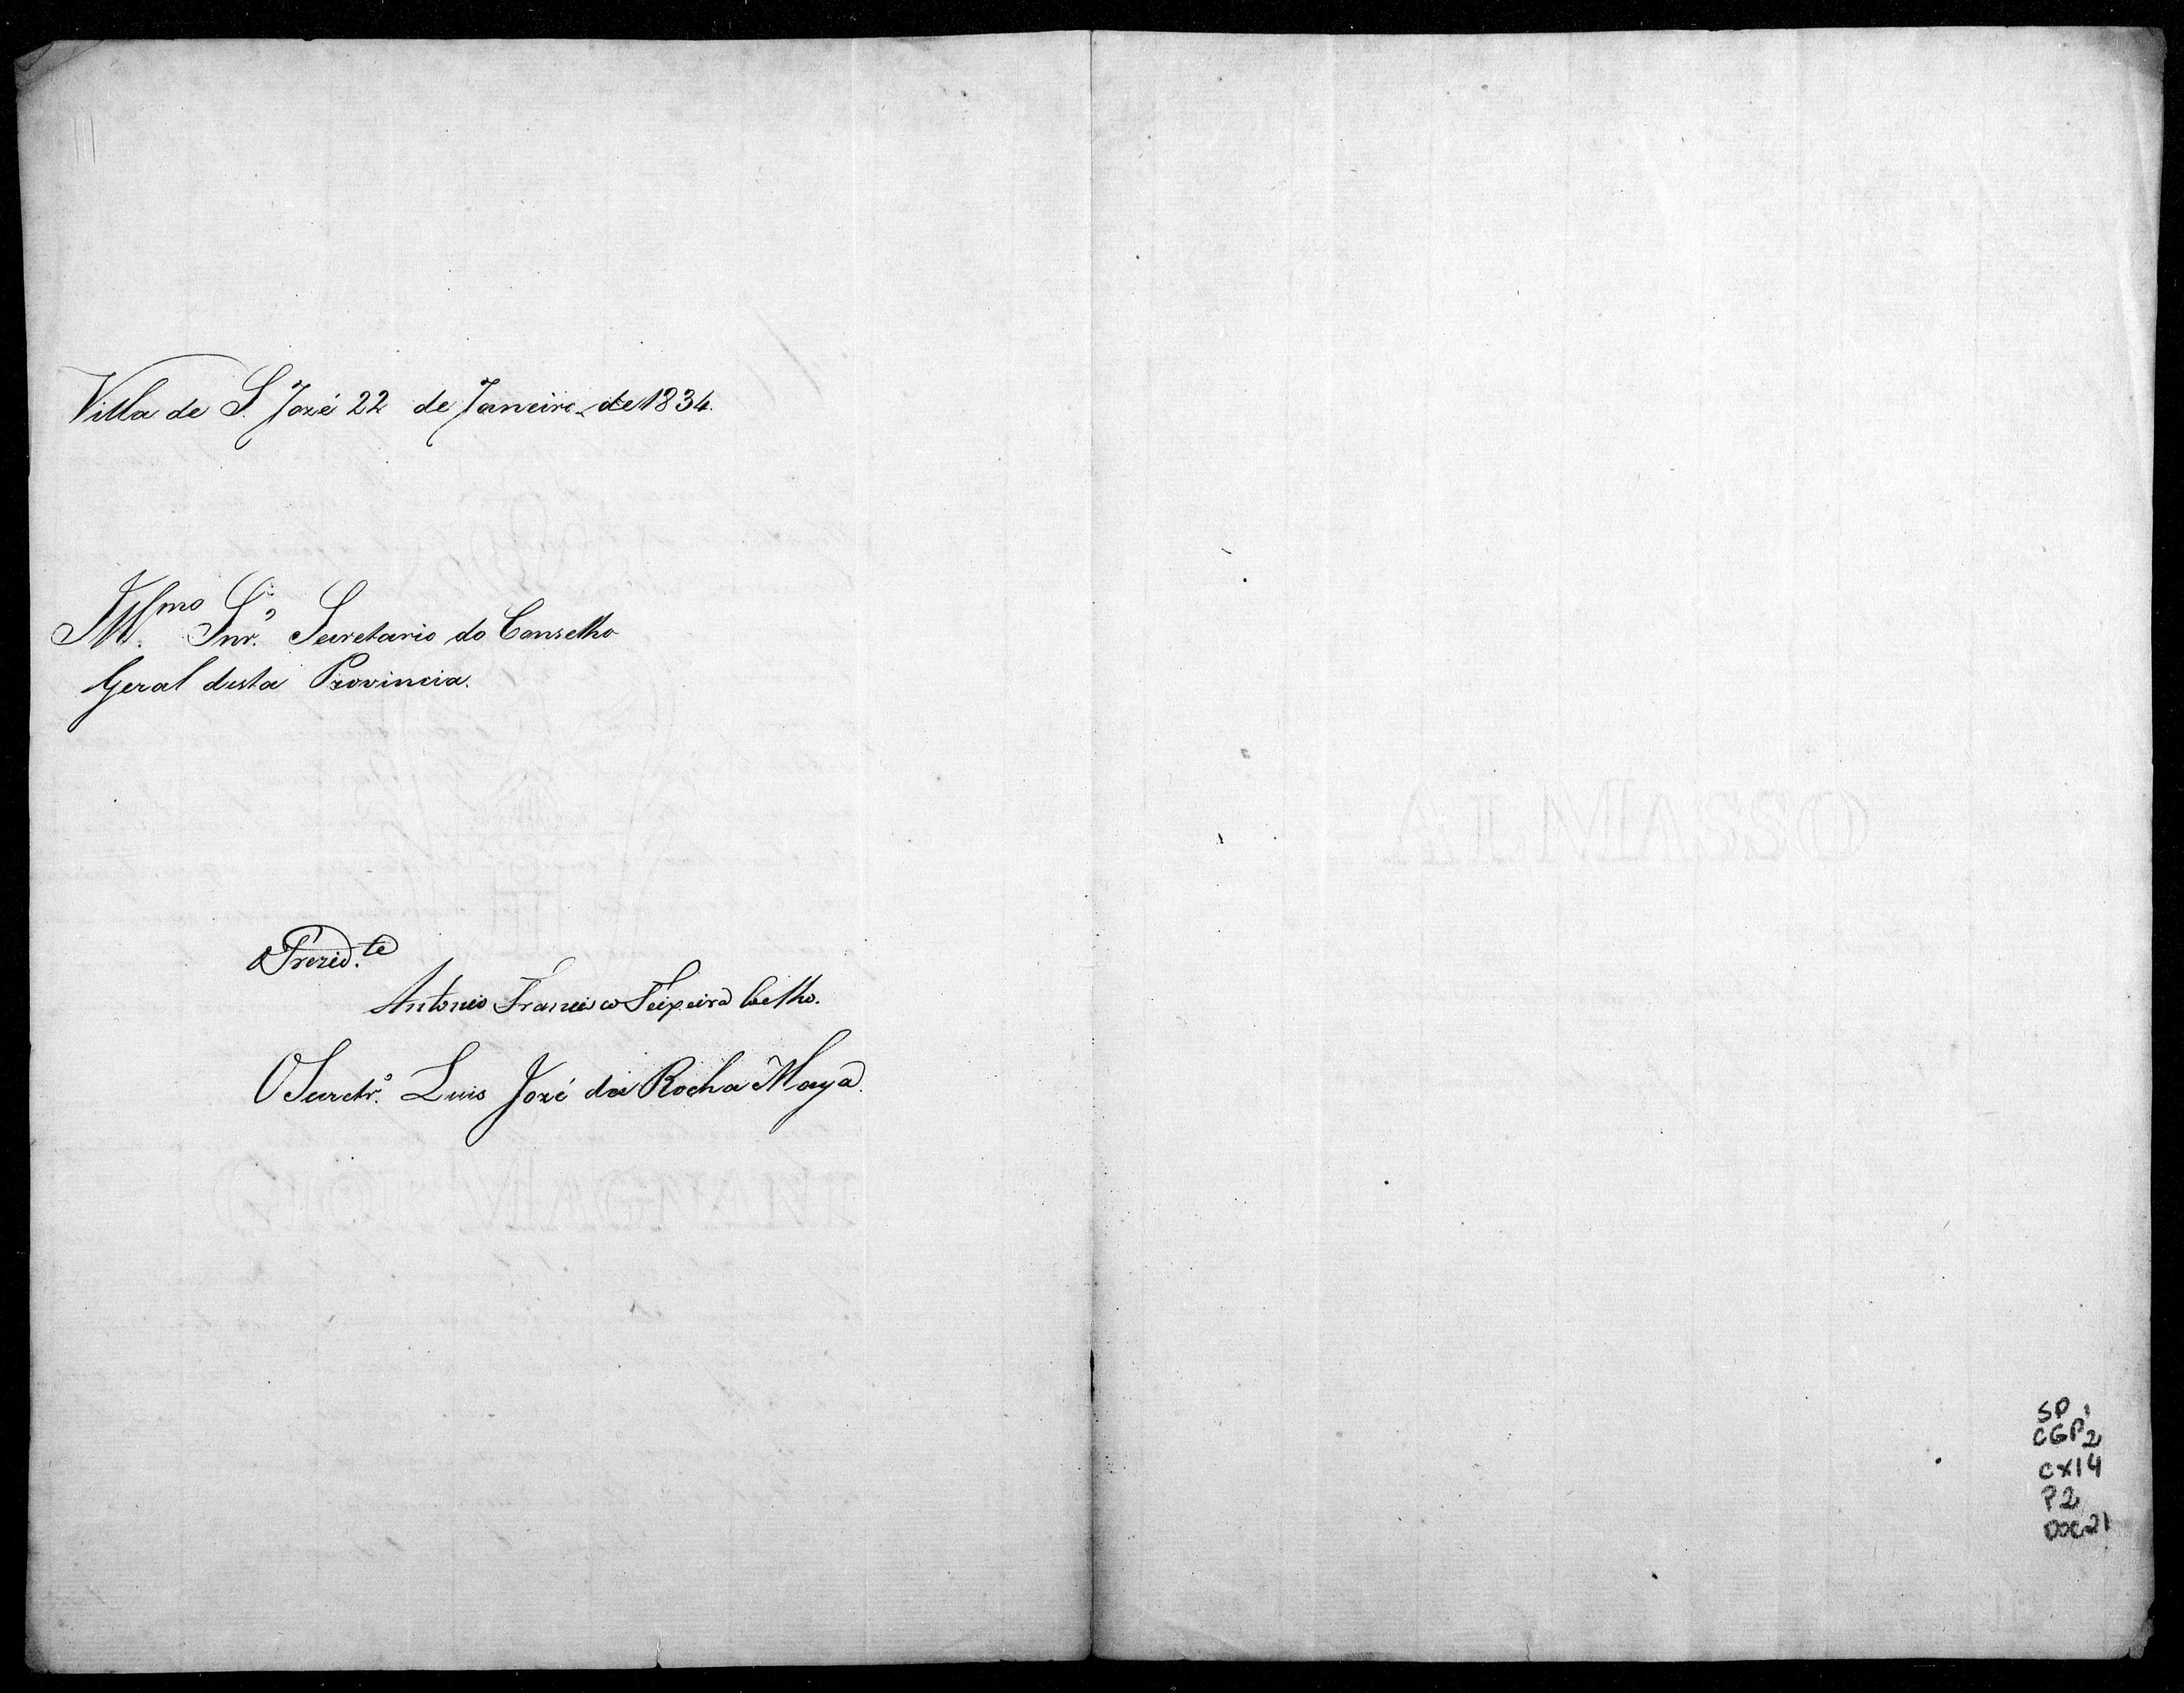 Villa de S. Jozé 22 de Janeiro de 1834.
Ill.mo Snr.º Secretario do Conselho
Geral desta Provincia.
O Prezid.te
Antonio Francisco Teixeira Coelho.
O Secretr.º Luis Jozé da Rocha Maya.
ALMASSO
GIOR MAGNANI
SP 1
CGP2
CX14
P2
DOC21